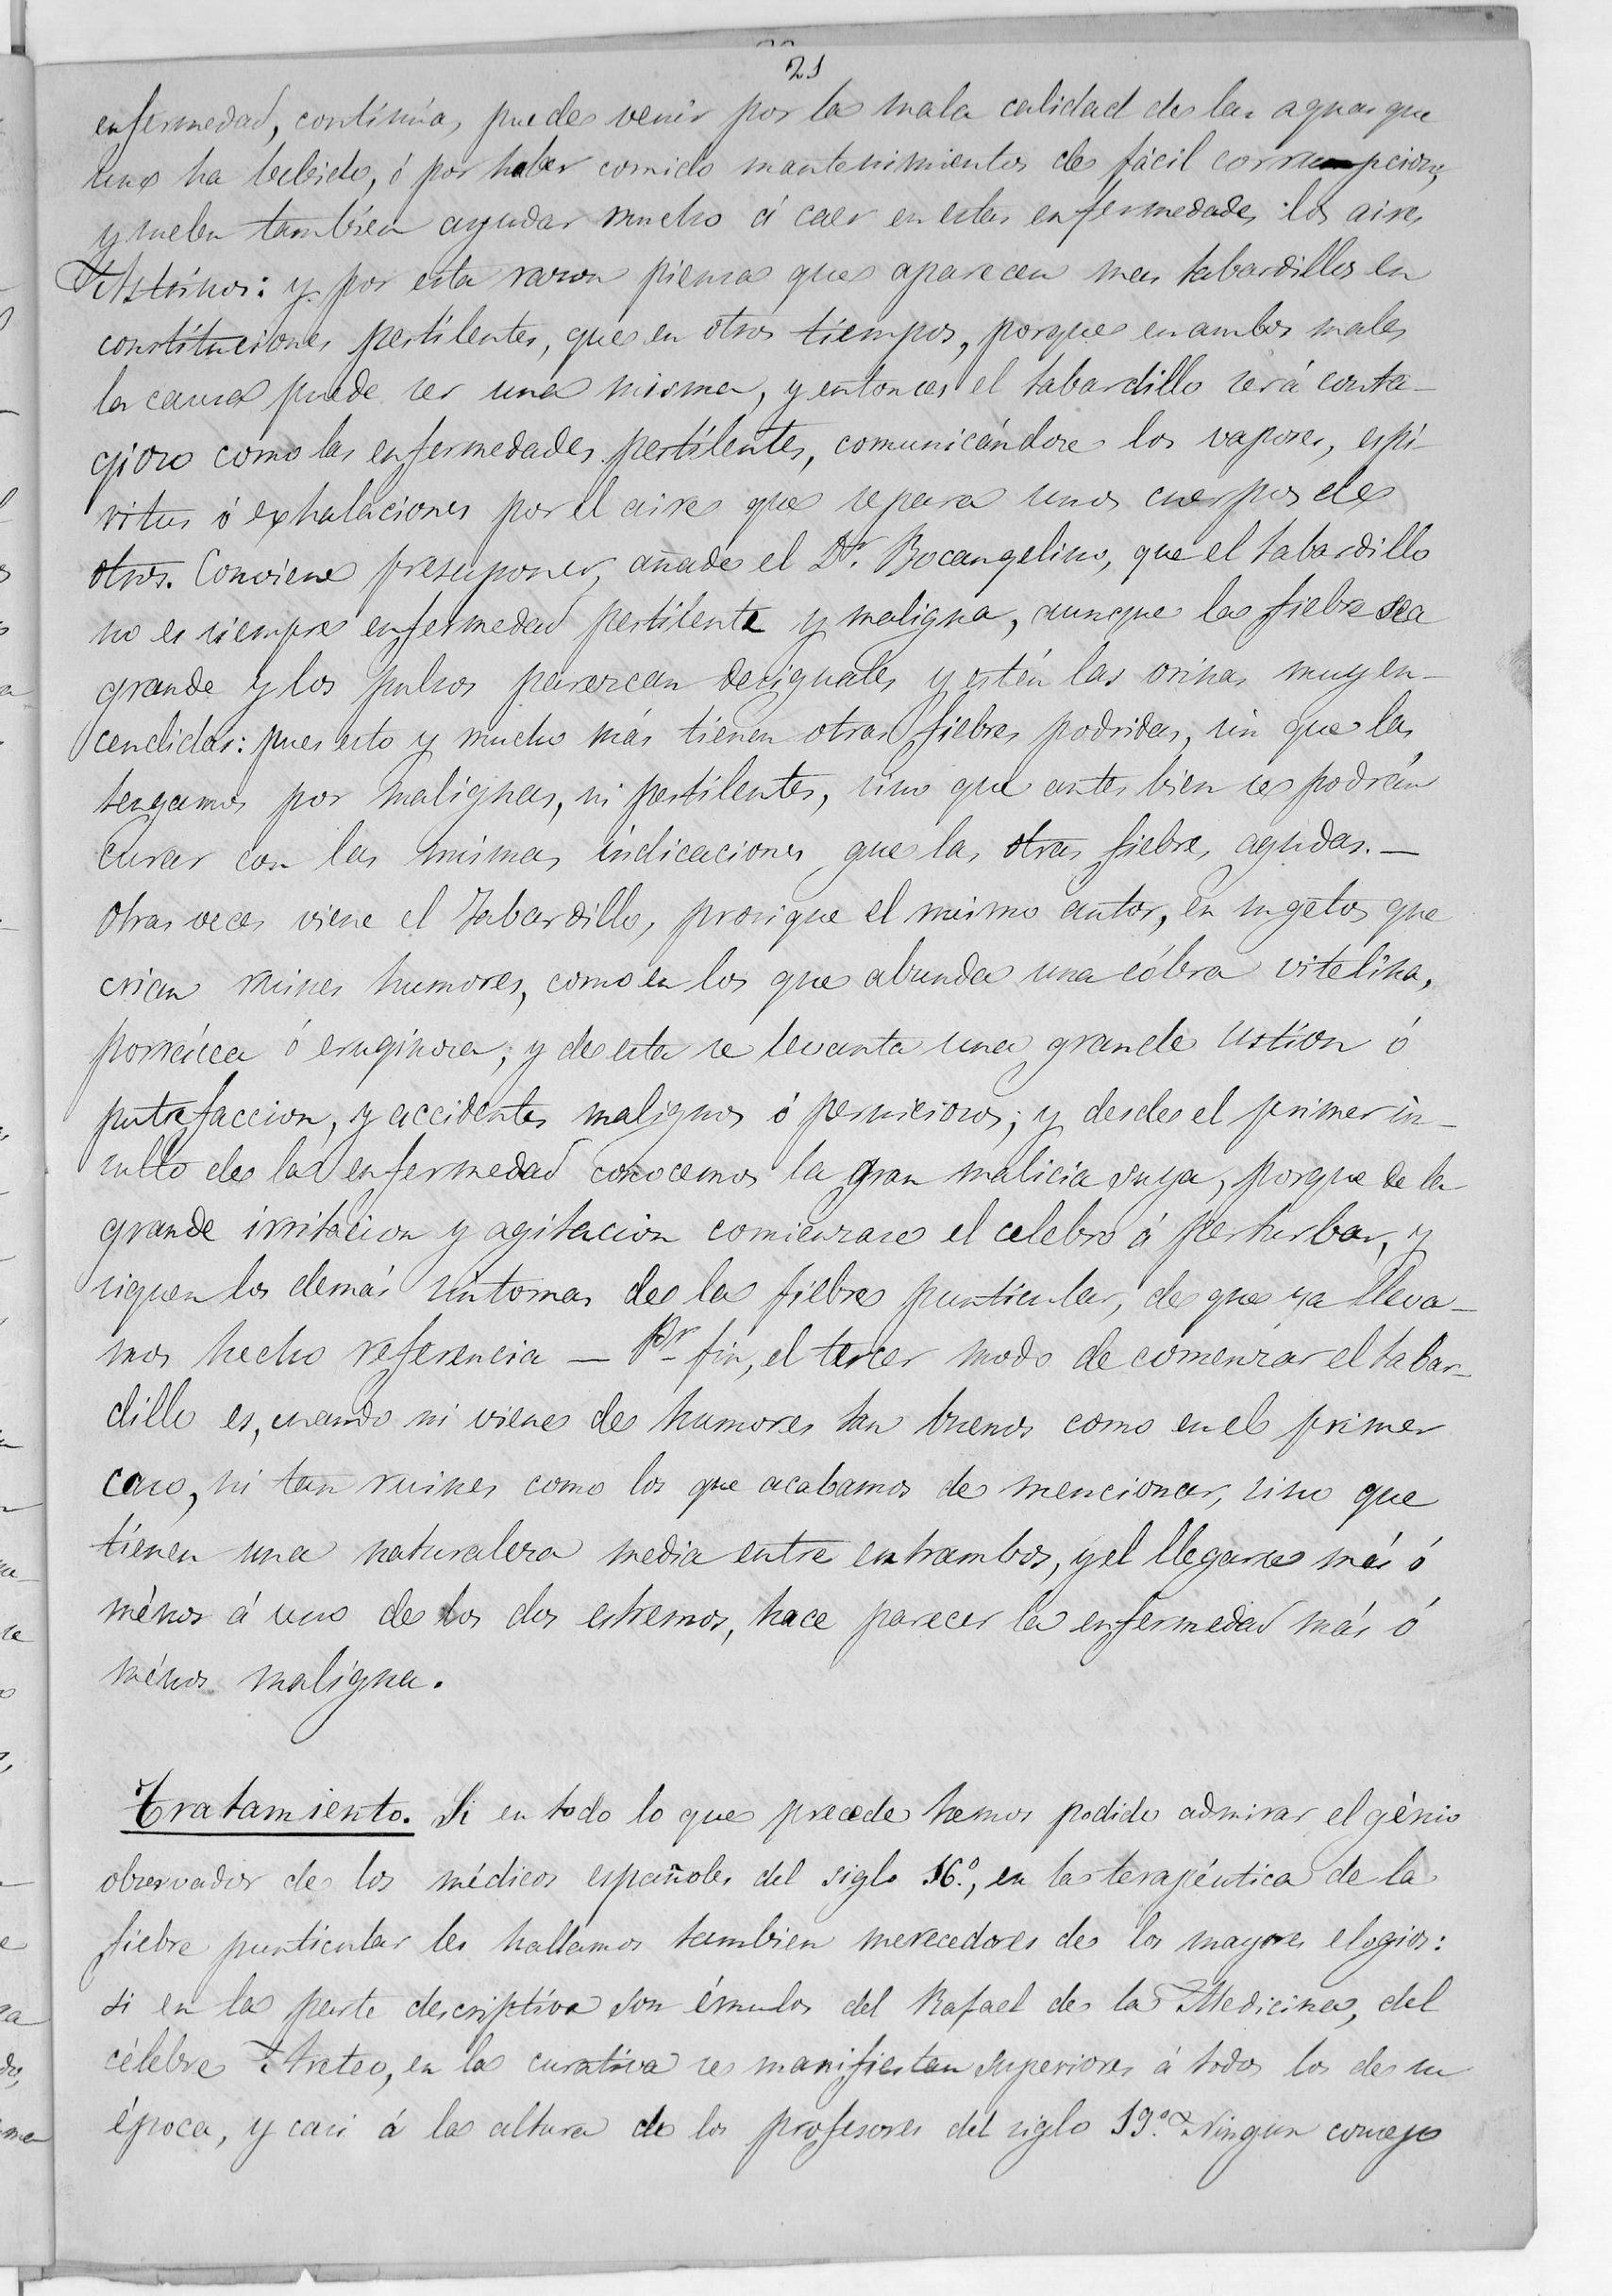 21
enfermedad, continúa, puede venir por la mala calidad de las aguas que
uno ha bebido, ó por haber comido mantenimientos de fácil corrupcion,
y suelen tambien ayudar mucho á caer en estas enfermedades los aires
Astrinos: y por esta razon piensa que aparecen mas tabardillos en
constituciones pestilentes, que en otros tiempos, porque en ambos males
la causa puede ser una misma, y entonces el tabardillo será conta-
gioso como las enfermedades pestilentes, comunicándose los vapores, espi-
ritus ó exhalaciones por el aire que separa unos cuerpos de
otros. Conviene presuponer, añade el Dr. Bocangelino, que el tabardillo
no es siempre enfermedad pestilente y maligna, aunque la fiebre sea
grande y los pulsos parezcan desiguales y estén las orinas muy en-
cendidas: pues esto y mucho más tienen otras fiebres podridas, sin que las
tengamos por malignas, ni pestilentes, sino que antes bien se podrán
curar con las mismas indicaciones que las otras fiebres agudas. —
Otras veces viene el Tabardillo, prosigue el mismo autor, en sugetos que
crian ruines humores, como en los que abunda una cólera vitelina,
porrácea ó eruginosa; y de esta se levanta una grande ustion ó
putrefaccion, y accidentes malignos ó perniciosos; y desde el primer in-
sulto de la enfermedad conocemos la gran malicia suya, porque de la
grande irritacion y agitacion comienzase el celebro á perturbar, y
siguen los demás sintomas de la fiebre punticular, de que ya lleva-
mos hecho referencia — Pr fin, el tercer modo de comenzar el tabar-
dillo es, cuando ni viene de humores tan buenos como en el primer
caso, ni tan ruines como los que acabamos de mencionar, sino que
tienen una naturaleza media entre entrambos, y el llegarse más ó
ménos á uno de los dos estremos, hace parecer la enfermedad más ó
ménos maligna.
Tratamiento. Si en todo lo que precede hemos podido admirar el génio
observador de los médicos españoles del siglo 16.º, en la terapéutica de la
fiebre punticular les hallamos tambien merecedores de los mayores elogios:
si en la parte descriptiva son émulos del Rafael de la Medicina, del
célebre Areteo, en la curativa se manifiestan superiores á todos los de su
época, y casi á la altura de los profesores del siglo 19.º Ningun consejo